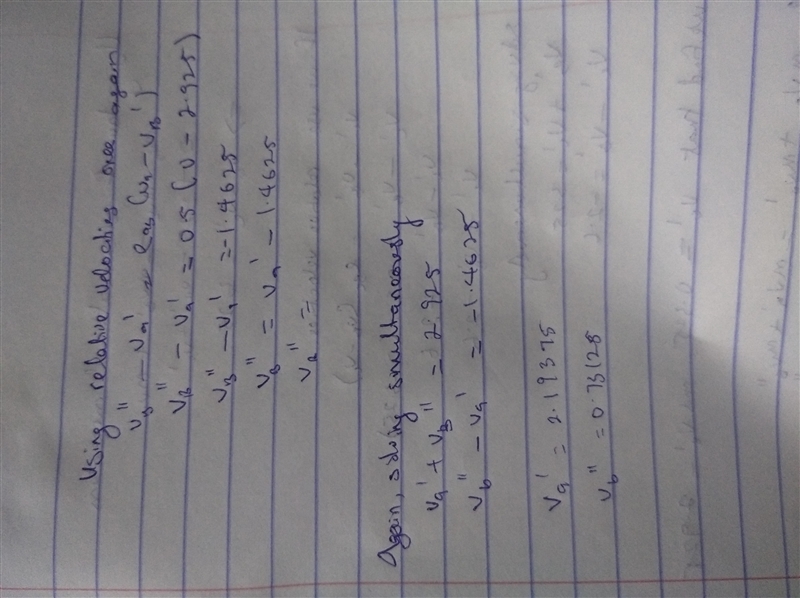 Using relative velocities once again
v_B'' - v_a' = e_ab (v_a - v_B')
v_B'' - v_a' = 0.5 (v - 2.925)
v_B'' - v_a' = -1.4625
v_B'' = v_a' - 1.4625
v_B'' =
Again, solving simultaneously
v_a' + v_B'' = 2.925
v_b'' - v_a' = -1.4625
v_a' = 2.19375
v_b'' = 0.73125